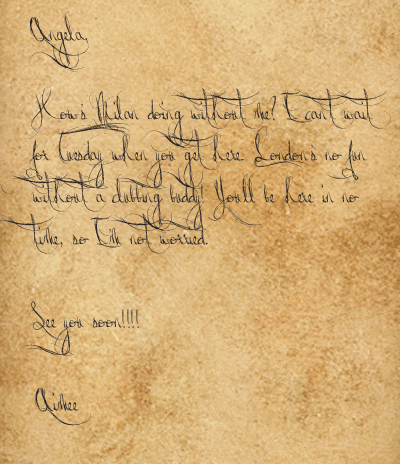 Angela,
How's Milan doing without me? I can't wait
for Tuesday when you get here. London's no fun
without a clubbing buddy! You'll be here in no
time, so I'm not worried.
See you soon!!!!
Aimee